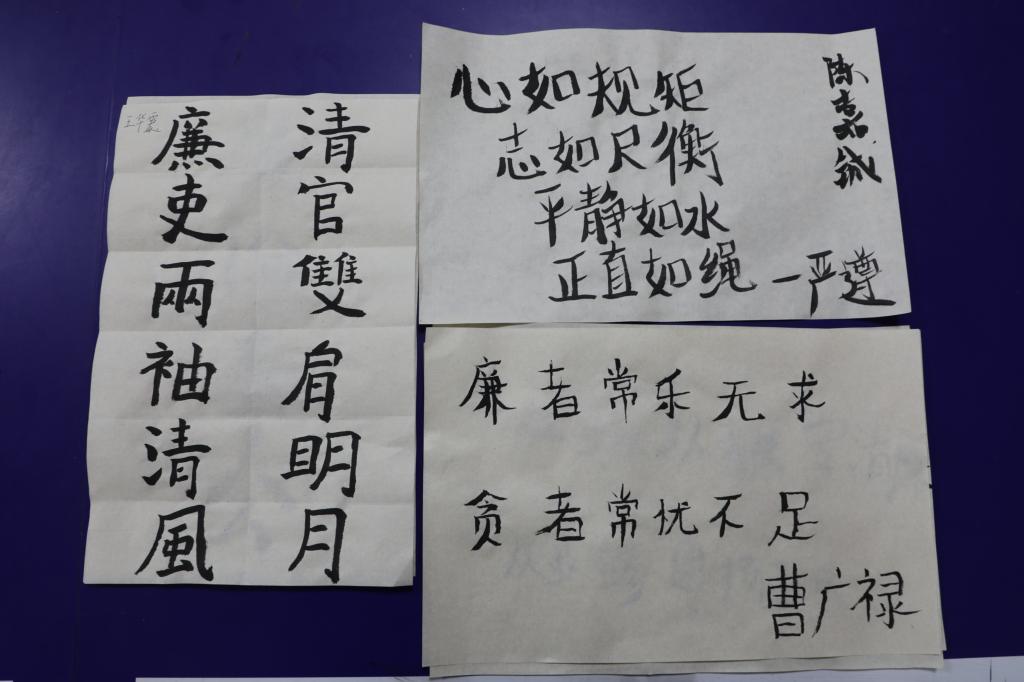 清官雙肩明月
廉吏兩袖清風
王华
心如规矩
志如尺衡
平静如水
正直如绳
—严遵
廉者常乐无求
贪者常忧不足
曹广禄